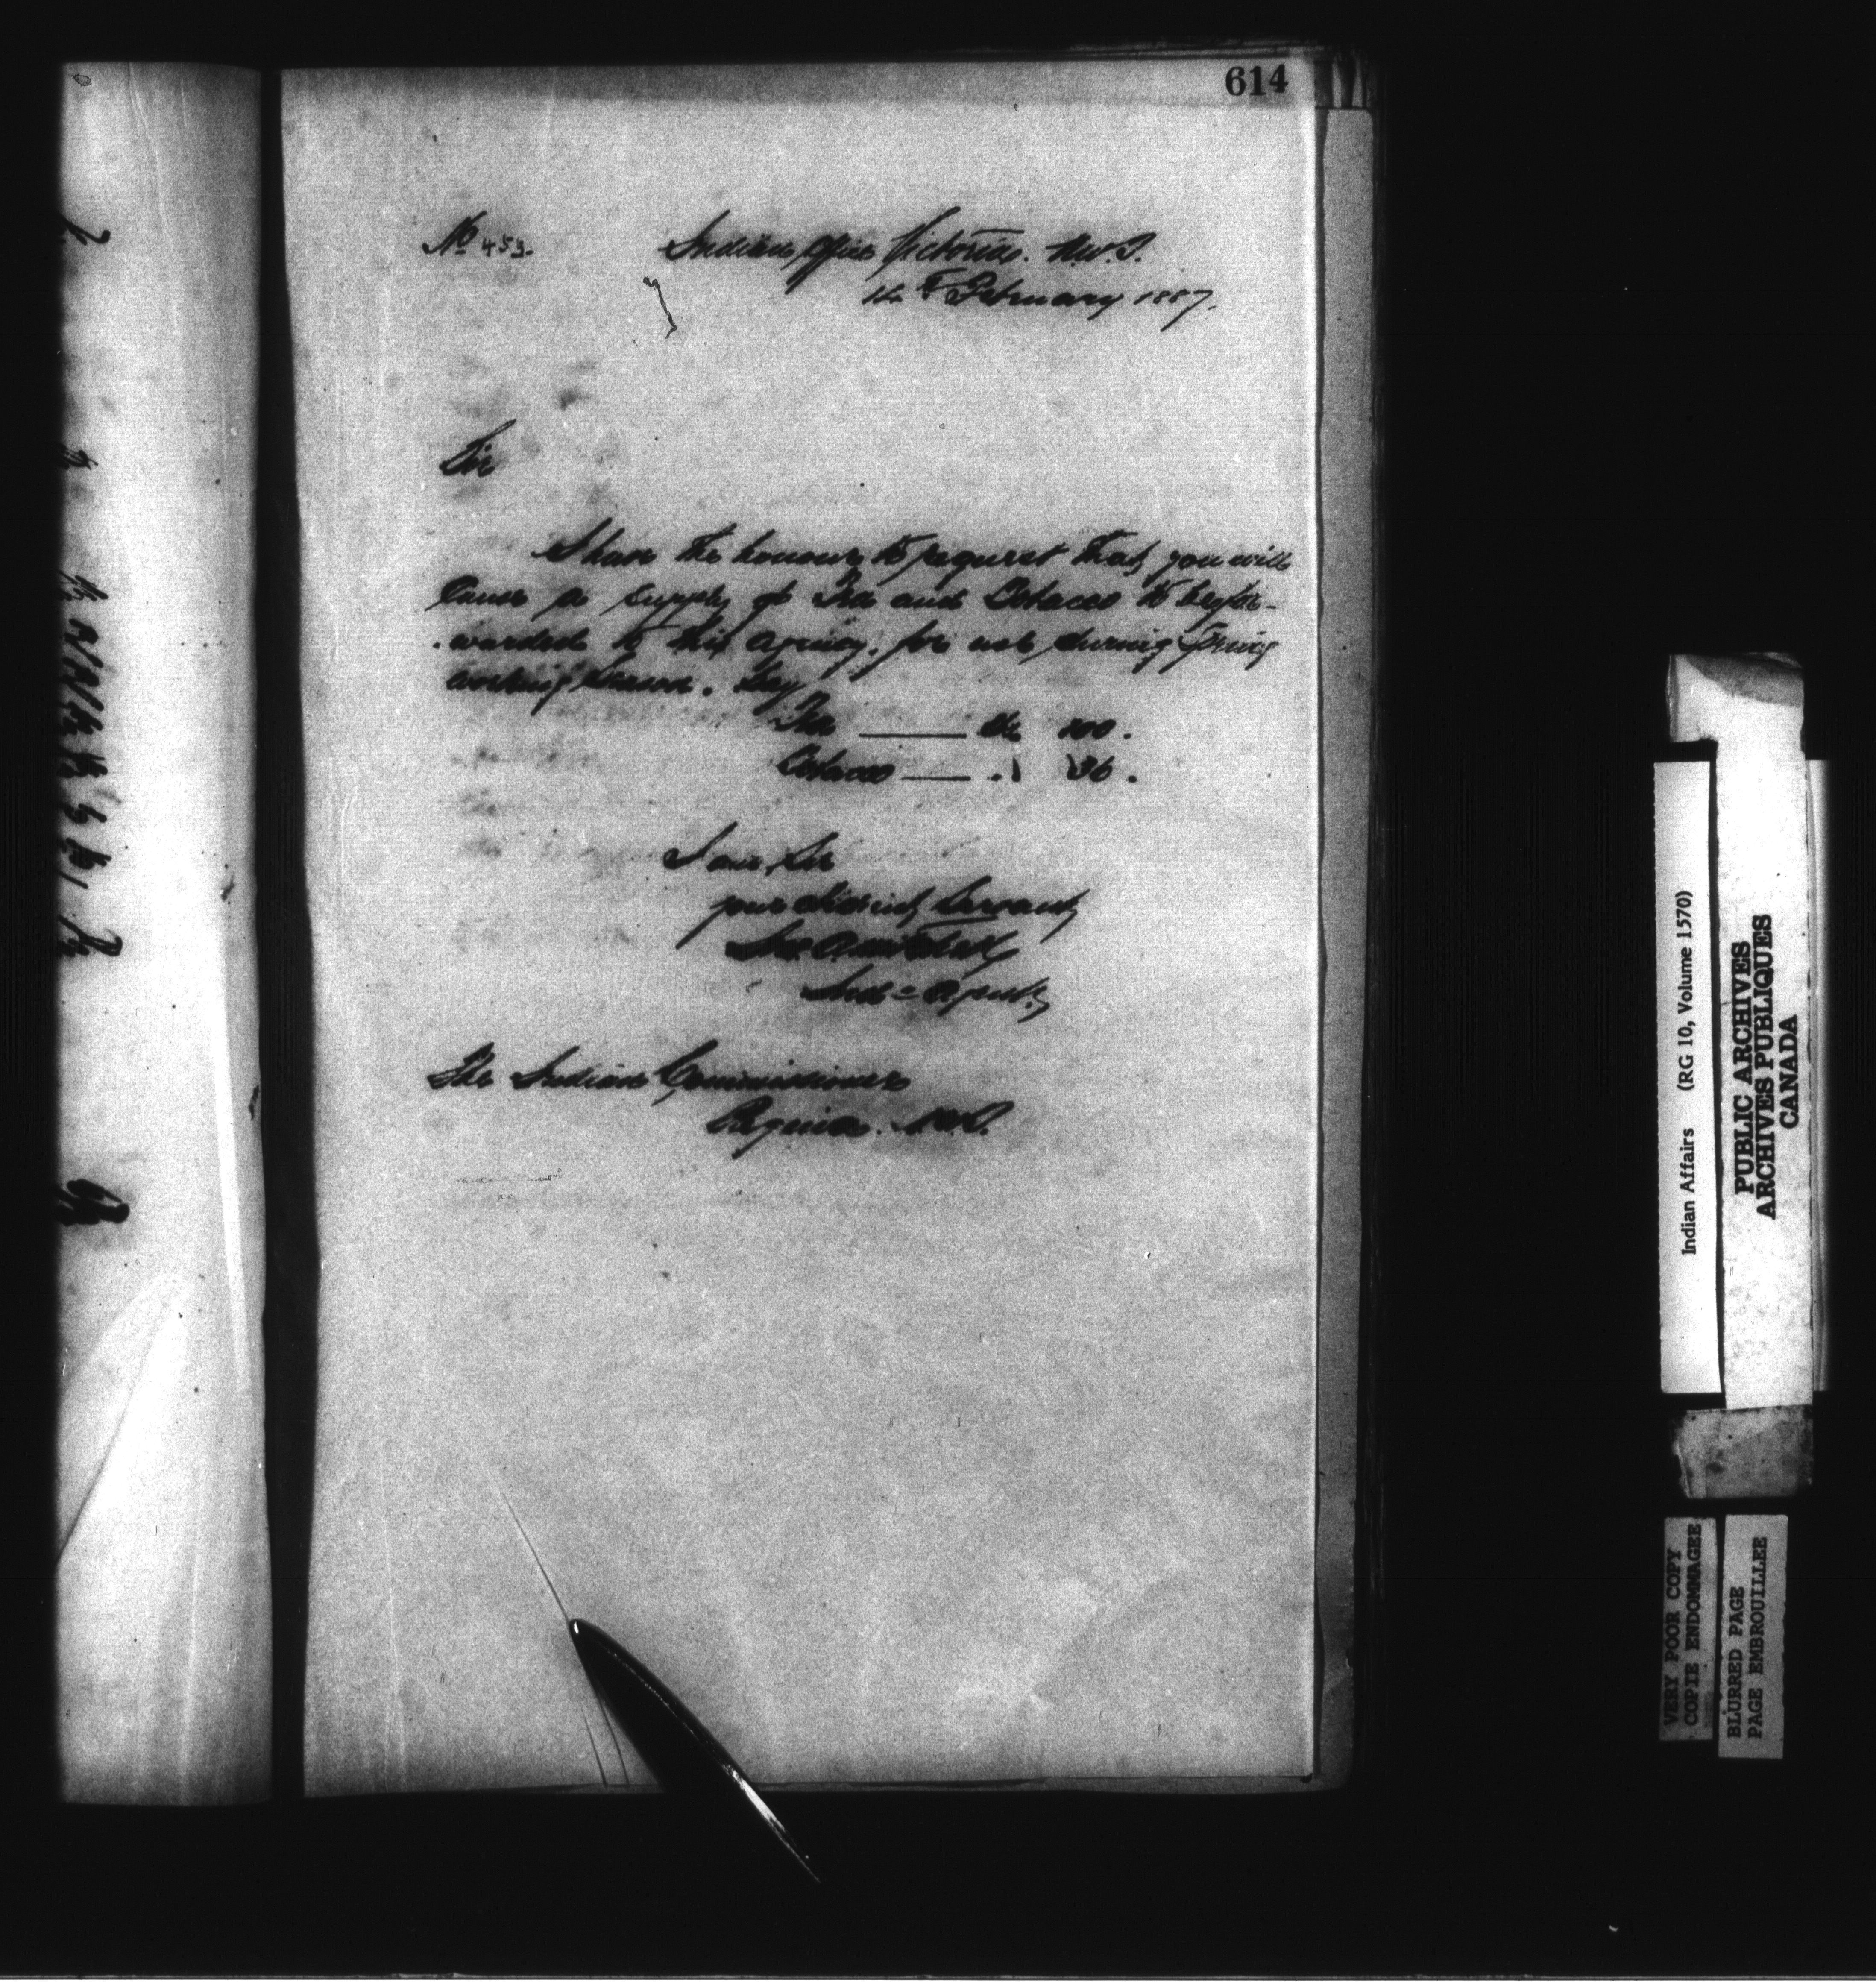 614
No 453.
Indian Office Victoria. N.W.T.
February 1887.
Sir
I have the honour to request that you will
Cause a supply of Tea and Tobacco to be for-
-warded to this agency. for use during Spring
working Season. Say
Tea ——— lbs 100.
Tobacco —— " 36.
I am, Sir
your obedient Servant
Ind: Agent.
The Indian Commissioner
Regina. N.W.T.
Indian Affairs (RG 10, Volume 1570)
PUBLIC ARCHIVES
ARCHIVES PUBLIQUES
CANADA
VERY POOR COPY
COPIE ENDOMMAGEE
BLURRED PAGE
PAGE EMBROUILLEE